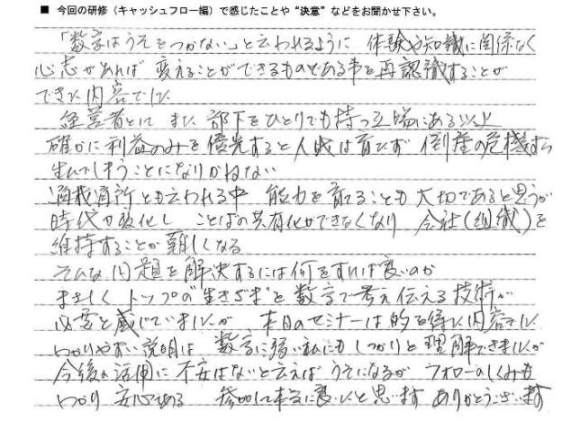 ■ 今回の研修（キャッシュフロー編）で感じたことや“決意”などをお聞かせ下さい。
「数字はうそをつかない」と言われるように 体験や知識に関係なく
心志があれば 変えることができるものである事を再認識することが
できた内容でした
経営者とは また 部下をひとりでも持つ立場にある以上
確かに利益のみを優先すると人財は育たず 倒産の危機すら
生んでしまうことになりかねない
適材適所とも言われる中 能力を育てることも大切であると思うが
時代が変化し ことばの共有化ができなくなり 会社（組織）を
維持することが難しくなる
そんな問題を解決するには何をすれば良いのか
まさしく トップの“生きざま”と数字で考え伝える技術が
必要と感じていましたが 本日のセミナーは的を得た内容でした
わかりやすい説明は 数字に弱い私にもしっかりと理解できましたが
今後の活用に不安はないと言えばうそになるが フォローのしくみも
わかり 安心である 参加して本当に良いと思います ありがとうございます